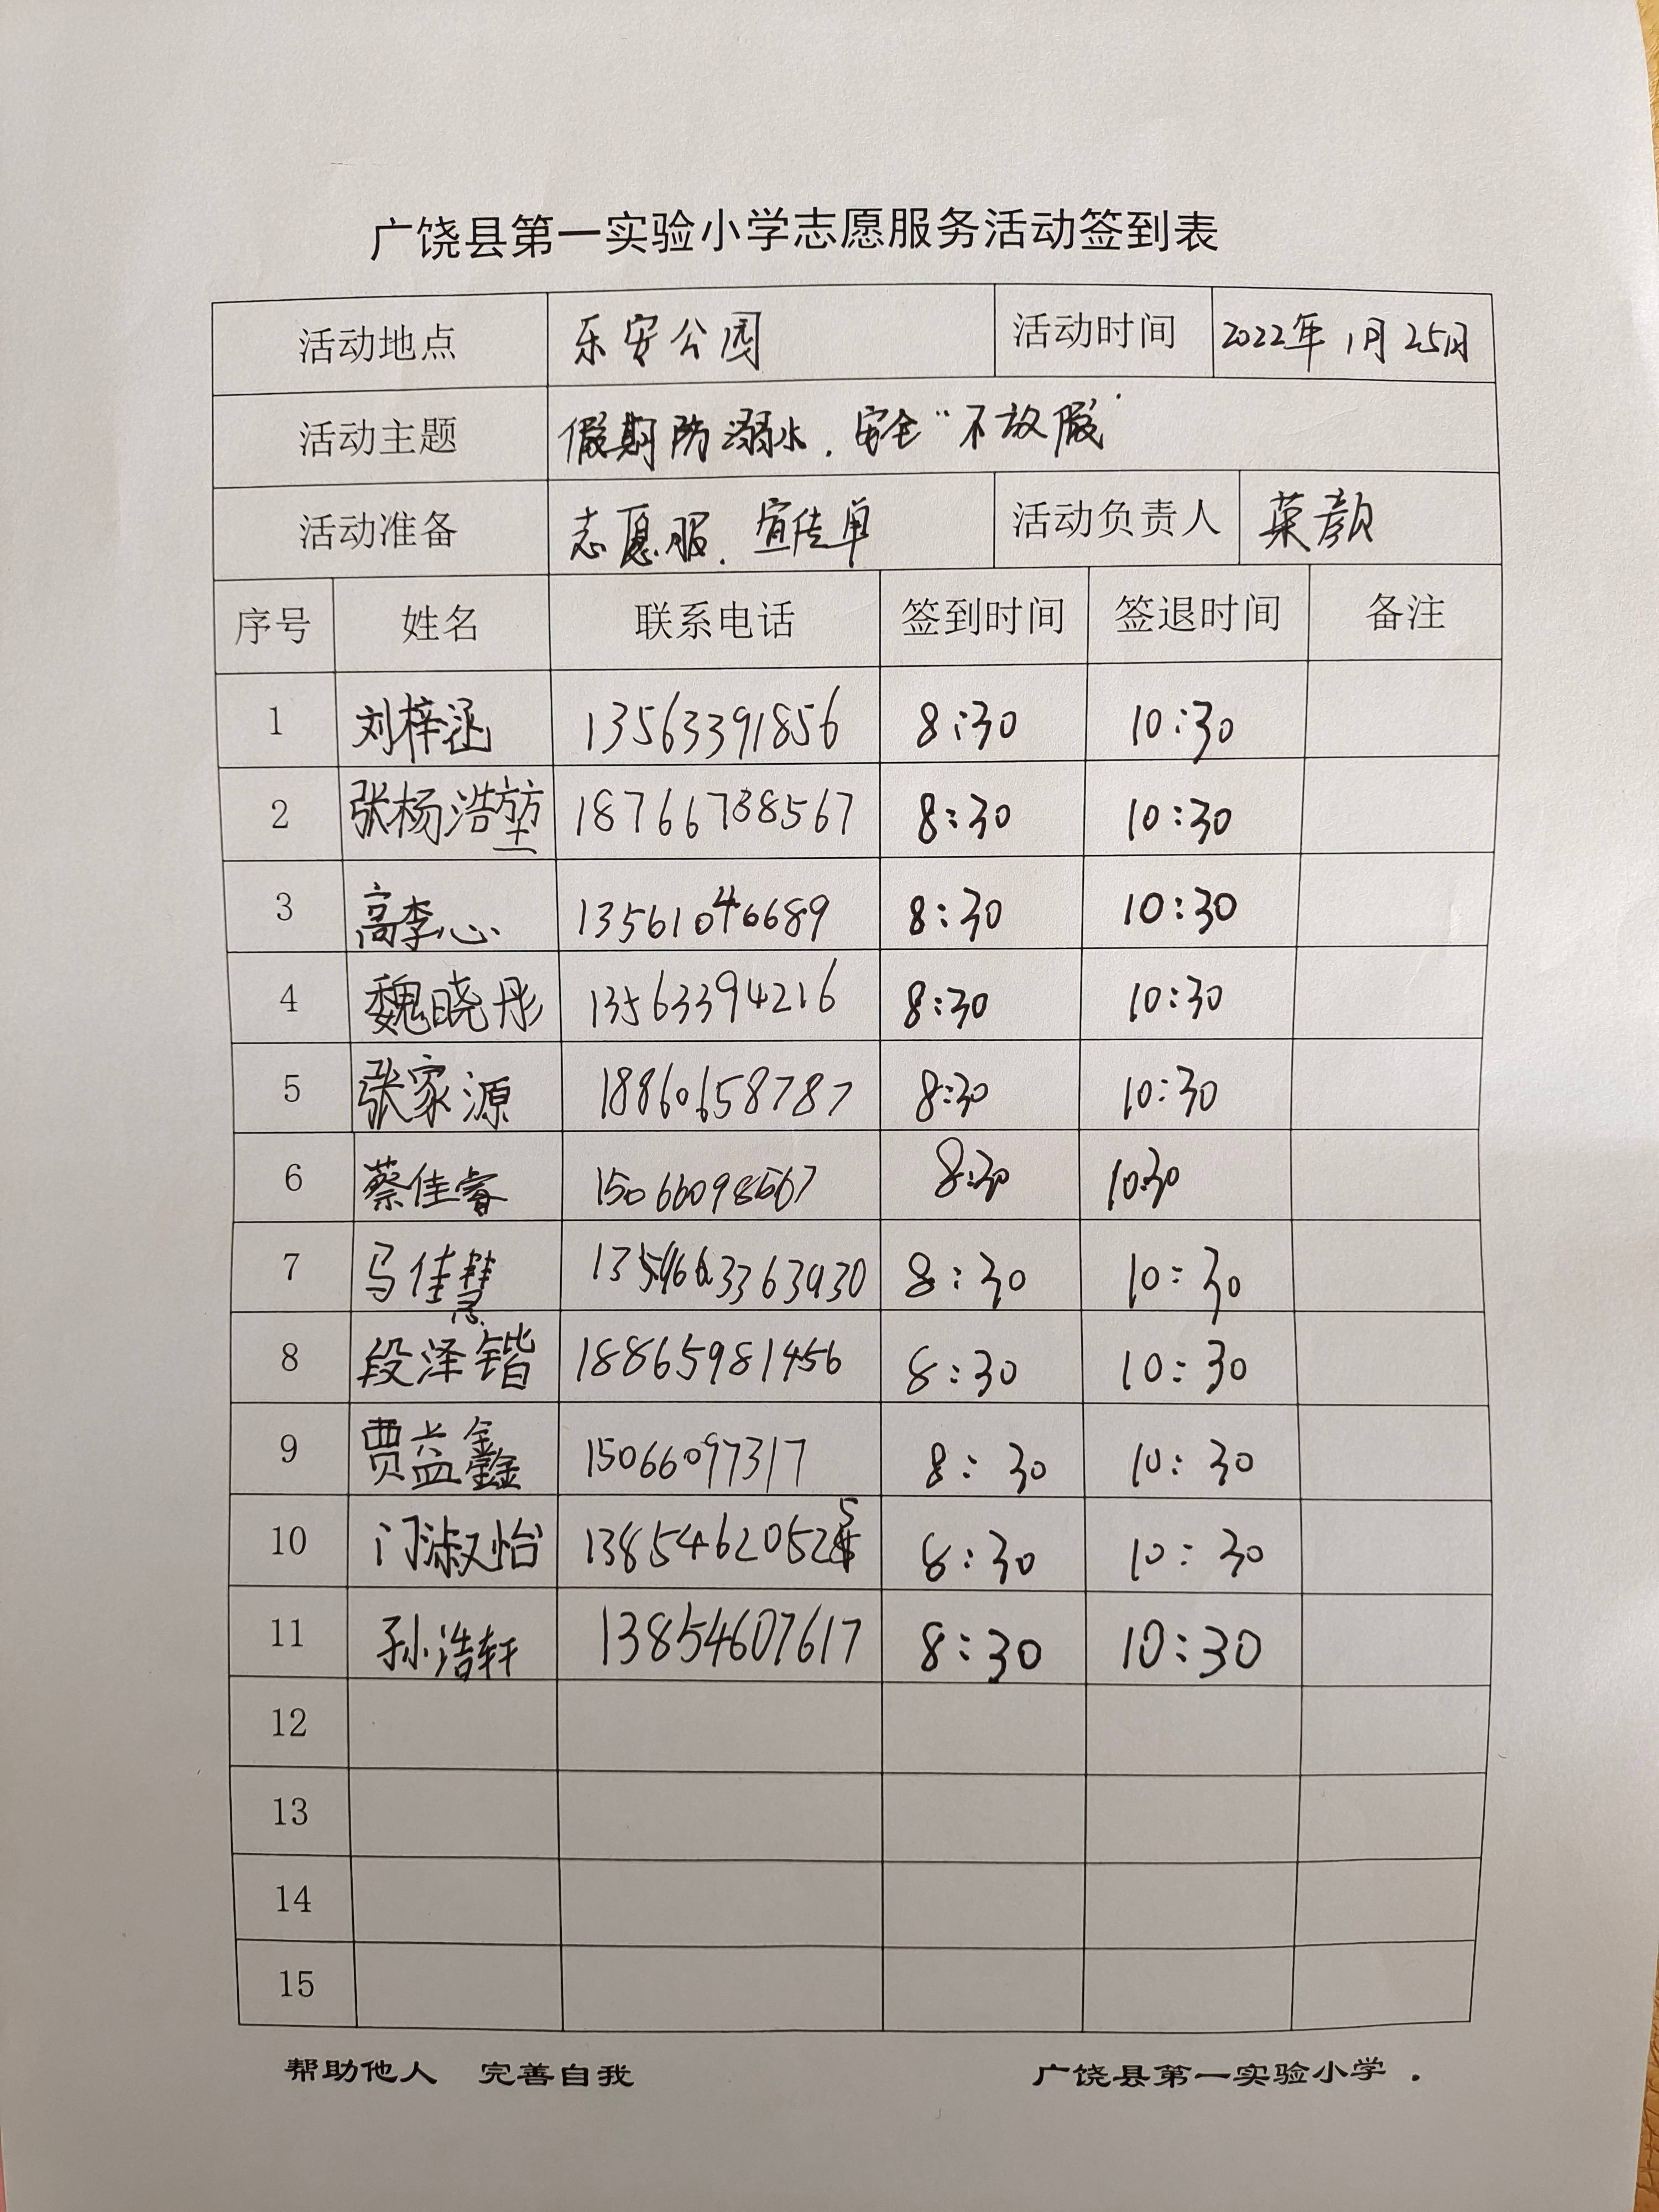 广饶县第一实验小学志愿服务活动签到表
活动地点 乐安公园 活动时间 2022年1月25日
活动主题 假期防溺水.安全“不放假”
活动准备 志愿服.宣传单 活动负责人 荣颜
序号 姓名 联系电话 签到时间 签退时间 备注
1 刘梓涵 13563391856 8:30 10:30
2 张杨浩堃 18766738567 8:30 10:30
3 高李心 13561046689 8:30 10:30
4 魏晓彤 13563394216 8:30 10:30
5 张家源 18860658787 8:30 10:30
6 蔡佳睿 15066098567 8:30 10:30
7 马佳慧 8:30 10:30
8 段泽锴 18865981456 8:30 10:30
9 贾益鑫 15066097317 8:30 10:30
10 门淑怡 13854620525 8:30 10:30
11 孙浩轩 13854607617 8:30 10:30
12
13
14
15
帮助他人 完善自我 广饶县第一实验小学.